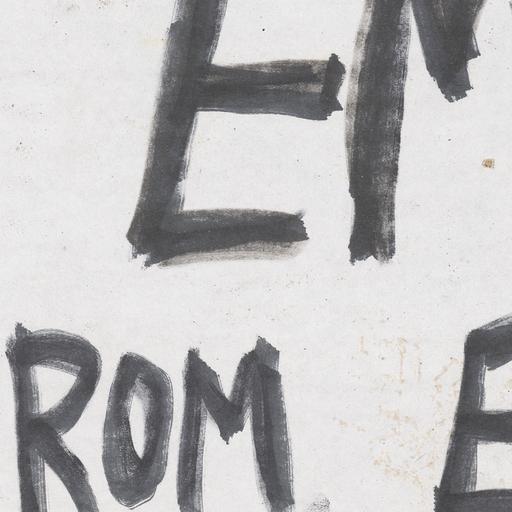 EM
ROM E